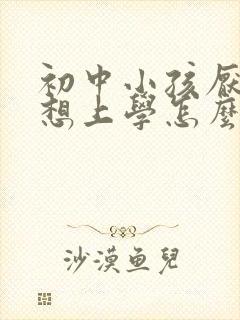 初中小孩厭
想上學怎麼
沙漠鱼兒